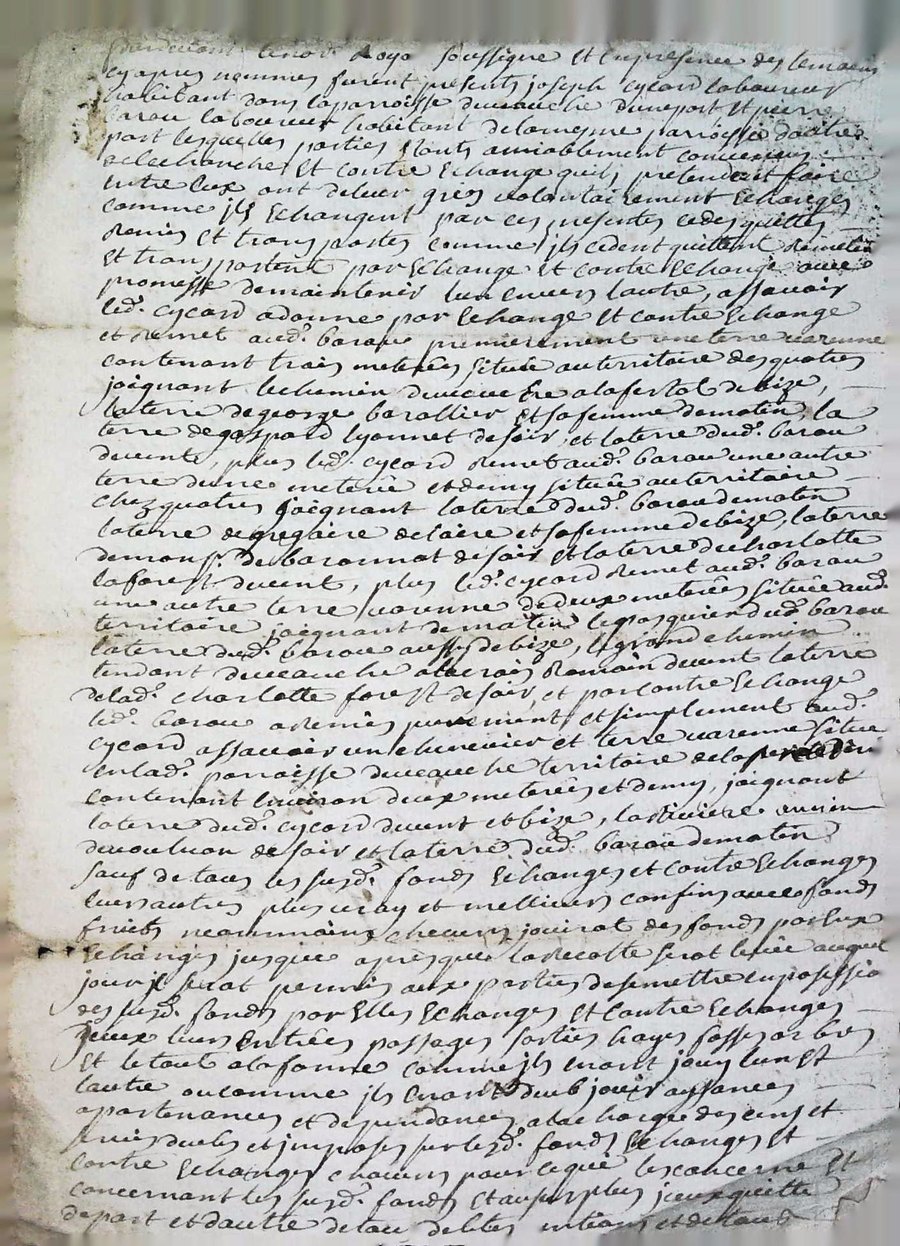 notaire Royal soussigné et en presence des temoins
cy apres nommes furent presents joseph cycard laboureur
habitant dans la parroisse duveauche dunepart et pierre
barou laboureur habitant delamesme parroisse dautre
part lesquelles parties étants amiablement convenues
delechange et contre Echange quils pretendent faire
entre Eux ont deleur grés volontairement Echangés
comme ils Echangent par ces presentes cedes quittes
Remis et transportés comme ils cedent quittent Remetent
et transportent par Echange et contre Echange avec
promesse demaintenir lun envers lautre, assavoir
led. cycard a donne par Echange et contre Echange
et Remet aud. barou premierement une terre varenne
contenant trois meterées située au territoire des quatres
joignant le chemin duveauche a lafertol de bize,
laterre degeorge barallier et safemme dematin, la
terre degaspard lyonnet desoir, et laterre dud. barou
devent, plus led. cycard Remet aud. barou une autre
terre dune meterée et demy située au territoire
chez quatres joignant laterre dud. barou dematin
laterre de gregaire delaire et safemme debize, laterre
demons.r de baronnat desoir et laterre decharlotte
laforest devent, plus led. cycard Remet aud. barou
une autre terre varenne dedeux meterées située aud.
territoire joignant dematin le pasquier dud. barou
laterre dud. barou aussy debize, le grand chemin
tendant duveauche a lacroix Romain devent laterre
delad. charlotte forest desoir, et par contre Echange
led. barou a Remis purement et simplement aud.
cycard assavoir un chenevier et terre varenne située
enlad. parroisse duveauche territoire de la
contenant environ deux meterées et demy, joignant
laterre dud. cycard devent et bize, la Riviere
desoir et laterre dud. barou dematin
sauf de tous les susd. fonds Echanges et contre Echanges
leurs autres plus vray et meilleurs confins avec fonds
fruits neanmoins chacun jouirat des fonds par Eux
Echanges jusques apres que la Recolte serat levée auquel
jour il serat permis aux parties desemettre en possession
des susd. fonds par Elles Echanges et contre Echanges
jceux leurs entrées passages sorties hayes fossés arbres
et le tout a la forme comme ils en ont jouy lun et
lautre ou comme ils en ont dub jouir aisances
apartenances et dependances a la charge des cens et
servis dues et imposés sur lesd. fonds Echanges et
contre Echanges chacun pour ce qui les concerne et
concernant les susd. fonds et au surplus jceux quitte
depart et dautre de tous debites et de tous